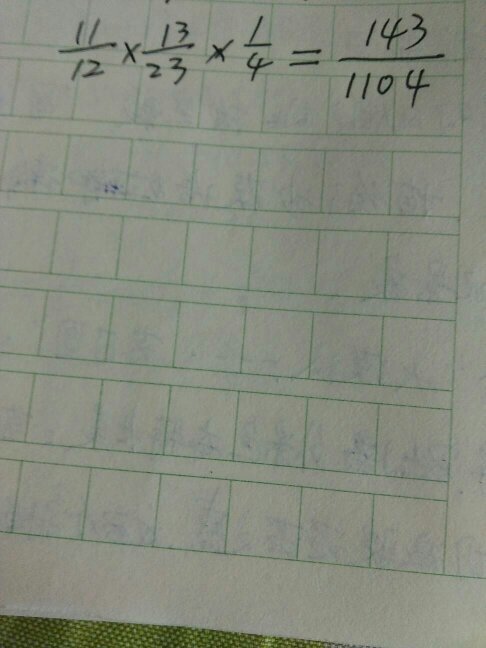 11/12 × 13/23 × 1/4 = 143/1104